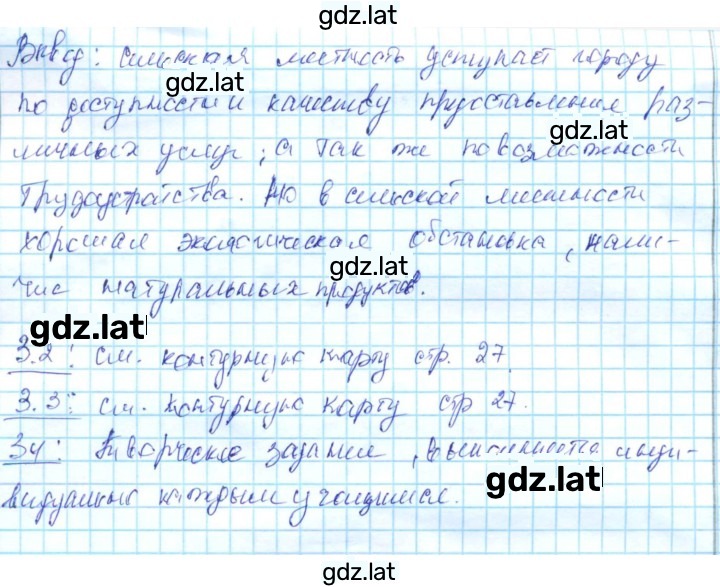 gdz.lat
Вывод: сельская местность уступает городу
gdz.lat
по доступности и качеству предоставления раз-
gdz.lat
личных услуг, а так же по возможности
трудоустройства. Но в сельской местности
хорошая экологическая обстановка, нали-
gdz.lat
чие натуральных продуктов.
gdz.lat
3.2: см. контурную карту стр. 27.
3.3: см. контурную карту стр 27.
34: Творческие задания, выполняются инди-
gdz.lat
видуально каждым учащимся.
gdz.lat